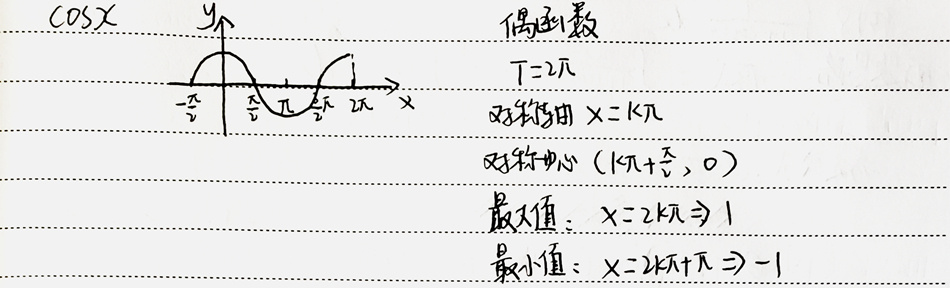 cosx
y
-π/2 π/2 π 3/2π 2π x
偶函数
T=2π
对称轴 x=kπ
对称中心 (kπ+π/2, 0)
最大值: x=2kπ⇒1
最小值: x=2kπ+π⇒-1